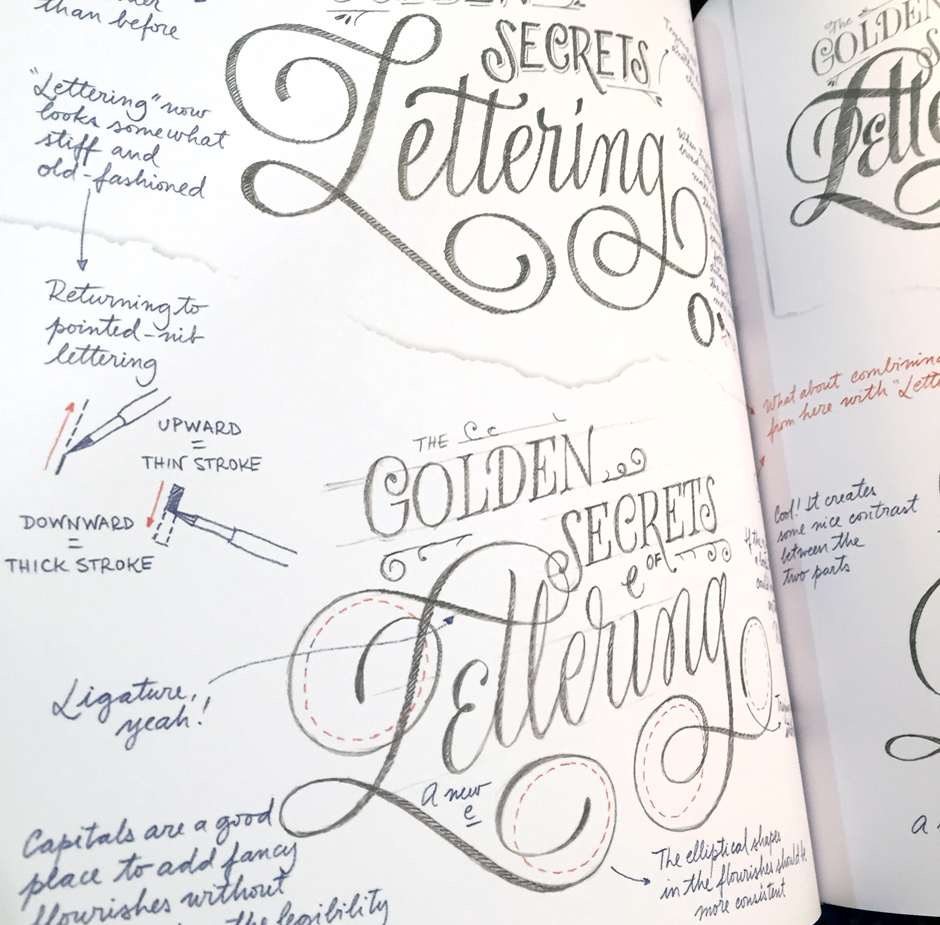 than before
"Lettering" now
looks somewhat
stiff and
old-fashioned
Returning to
pointed-nib
lettering
UPWARD
=
THIN STROKE
DOWNWARD
=
THICK STROKE
Ligature,
yeah!
Capitals are a good
place to add fancy
flourishes without
the legibility
GOLDEN
SECRETS
Lettering
THE
GOLDEN
SECRETS
OF
e
Lettering
A new
e
The elliptical shapes
in the flourishes should be
more consistent
The
GOLDEN
S
Lette
What about combining
from here with "Lett
Cool! It creates
some nice contrast
between the
two parts
a